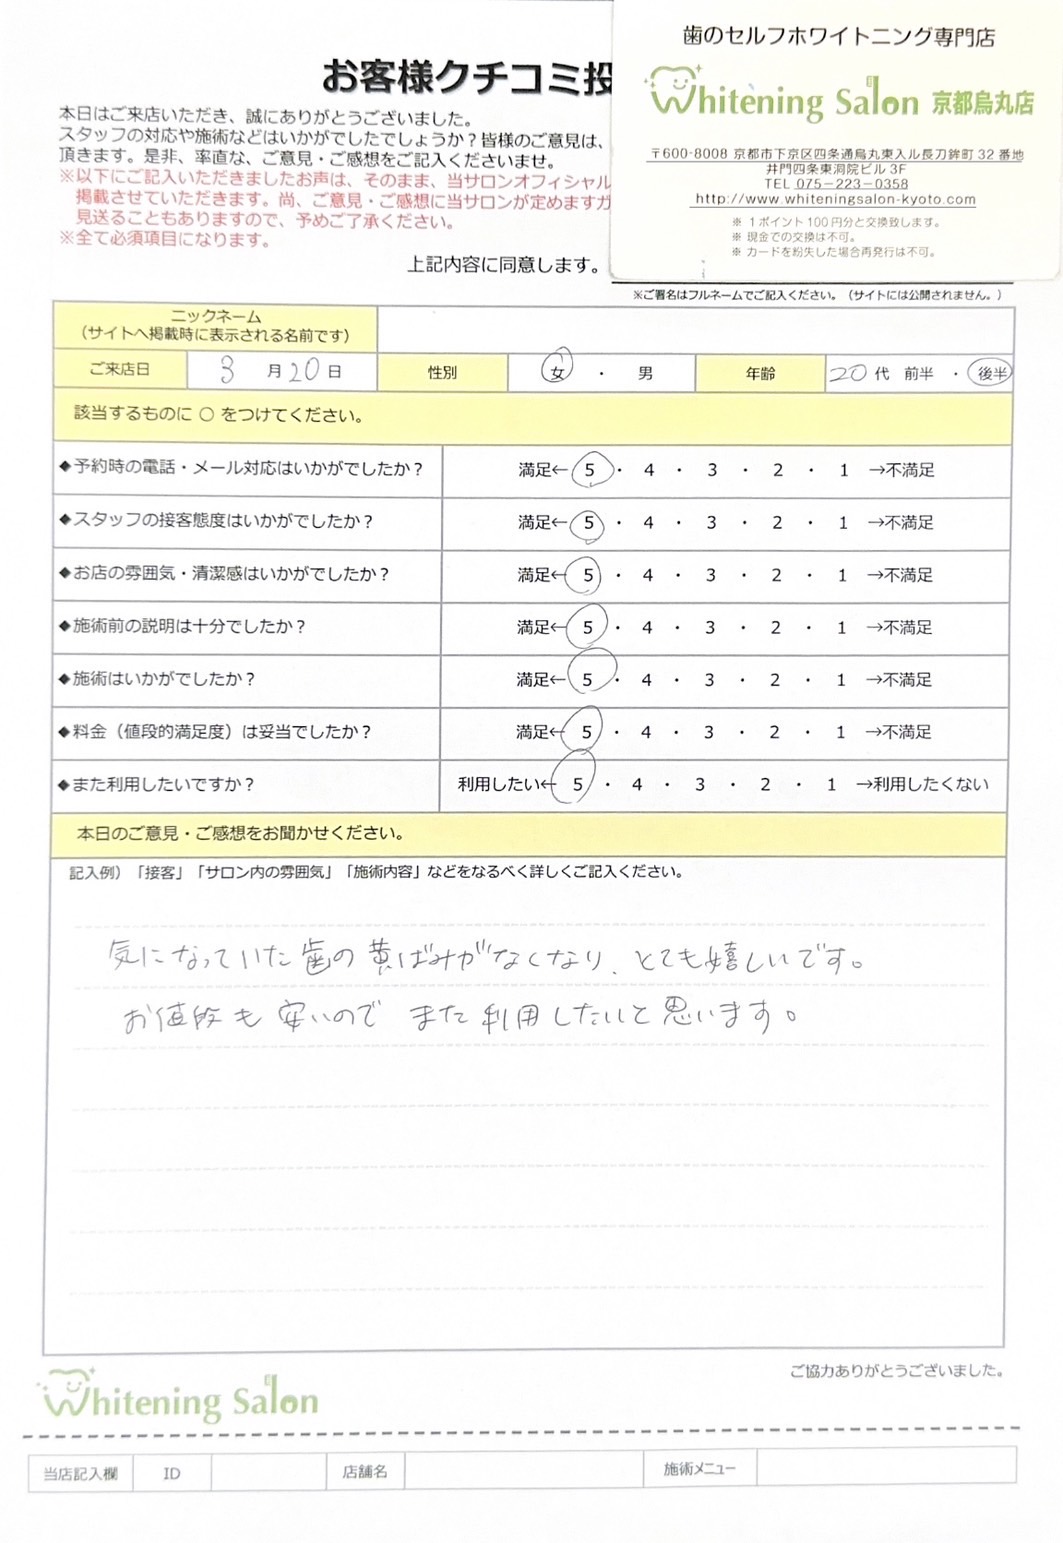 歯のセルフホワイトニング専門店
Whitening Salon 京都烏丸店
〒600-8008 京都市下京区四条通烏丸東入ル長刀鉾町 32 番地
井門四条東洞院ビル 3F
TEL 075-223-0358
http://www.whiteningsalon-kyoto.com
※ 1ポイント100円分と交換致します。
※ 現金での交換は不可。
※ カードを紛失した場合再発行は不可。
お客様クチコミ投
本日はご来店いただき、誠にありがとうございました。
スタッフの対応や施術などはいかがでしたでしょうか？皆様のご意見は、
頂きます。是非、率直な、ご意見・ご感想をご記入くださいませ。
※以下にご記入いただきましたお声は、そのまま、当サロンオフィシャル
掲載させていただきます。尚、ご意見・ご感想に当サロンが定めますガ
見送ることもありますので、予めご了承ください。
※全て必須項目になります。
上記内容に同意します。
※ご署名はフルネームでご記入ください。（サイトには公開されません。）
ニックネーム
（サイトへ掲載時に表示される名前です）
ご来店日 3 月 20 日 性別 女 ・ 男 年齢 20 代 前半 ・ 後半
該当するものに ○ をつけてください。
◆予約時の電話・メール対応はいかがでしたか？ 満足← 5 ・ 4 ・ 3 ・ 2 ・ 1 →不満足
◆スタッフの接客態度はいかがでしたか？ 満足← 5 ・ 4 ・ 3 ・ 2 ・ 1 →不満足
◆お店の雰囲気・清潔感はいかがでしたか？ 満足← 5 ・ 4 ・ 3 ・ 2 ・ 1 →不満足
◆施術前の説明は十分でしたか？ 満足← 5 ・ 4 ・ 3 ・ 2 ・ 1 →不満足
◆施術はいかがでしたか？ 満足← 5 ・ 4 ・ 3 ・ 2 ・ 1 →不満足
◆料金（値段的満足度）は妥当でしたか？ 満足← 5 ・ 4 ・ 3 ・ 2 ・ 1 →不満足
◆また利用したいですか？ 利用したい← 5 ・ 4 ・ 3 ・ 2 ・ 1 →利用したくない
本日のご意見・ご感想をお聞かせください。
記入例）「接客」「サロン内の雰囲気」「施術内容」などをなるべく詳しくご記入ください。
気になっていた歯の黄ばみがなくなり、とても嬉しいです。
お値段も安いのでまた利用したいと思います。
ご協力ありがとうございました。
Whitening Salon
当店記入欄 ID 店舗名 施術メニュー